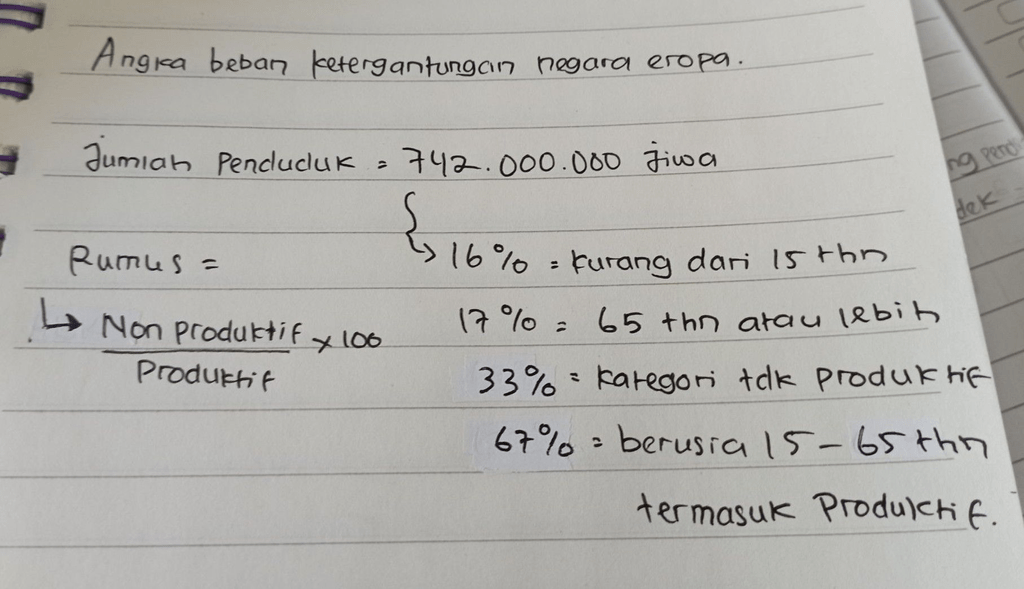 Angka beban ketergantungan negara eropa.
Jumlah Penduduk = 742.000.000 jiwa
Rumus =
16% = kurang dari 15 thn
Non produktif x 100
Produktif
17% = 65 thn atau lebih
33% = kategori tdk produktif
67% = berusia 15 - 65 thn
termasuk Produktif.
ng pend
dek